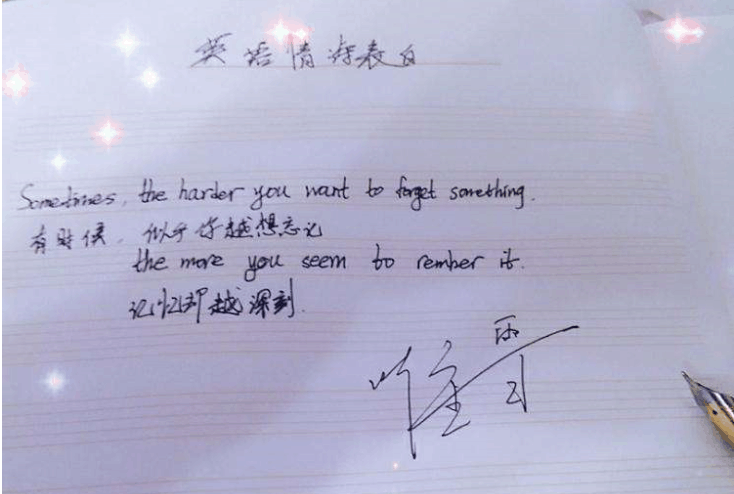 英语情诗表白
Sometimes, the harder you want to forget something.
有时候，似乎你越想忘记
the more you seem to rember it.
记忆却越深刻.